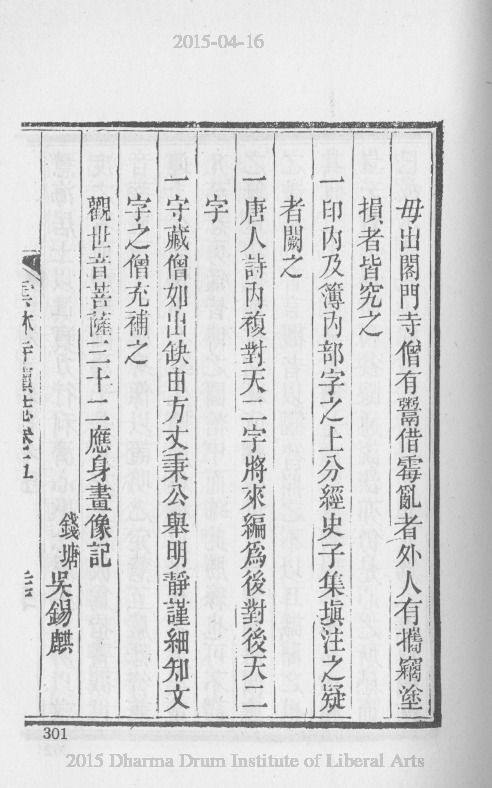 2015-04-16
毋出閣門寺僧有鬻借霉亂者外人有攜竊塗
損者皆究之
一印內及簿內部字之上分經史子集塡注之疑
者闕之
一唐人詩內複對天二字將來編爲後對後天二
字
一守藏僧如出缺由方丈秉公舉明靜謹細知文
字之僧充補之
觀世音菩薩三十二應身畫像記
錢塘吳錫麒
雲林寺續志卷之五
301
2015 Dharma Drum Institute of Liberal Arts